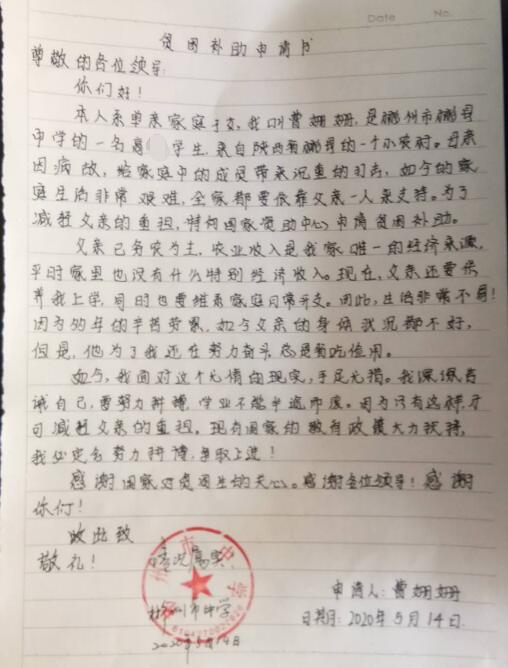 Date No.
贫困补助申请书
尊敬的各位领导:
你们好!
本人来单亲家庭子女,我叫曹姗姗,是彬州市彬县
中学的一名高 学生,来自陕西省彬县的一个小农村。母亲
因病故,给家庭中的成员带来沉重的打击,如今的家
庭生活非常艰难,全家都要依靠父亲一人来支持。为了
减轻父亲的重担,特向国家资助中心申请贫困补助。
父亲已务农为主,农业收入是我家唯一的经济来源,
平时家里也没有什么特别经济收入。现在,父亲还要供
养我上学,同时也要维系家庭日常开支。因此,生活非常不易!
因为多年的辛苦劳累,如今父亲的身体状况都不好,
但是,他为了我还在努力奋斗,总是省吃俭用。
如今,我面对这个无情的现实,手足无措。我深深告
诫自己,要努力拼搏,学业不能半途而废。因为只有这样才
可减轻父亲的重担。现有国家的教育政策大力扶持,
我必定会努力拼搏,争取上进!
感谢国家对贫困生的关心。感谢各位领导!感谢
你们!
故此致
敬礼!
情况属实.
州市中学
2020年5月14日
申请人:曹姗姗
日期:2020年5月14日.